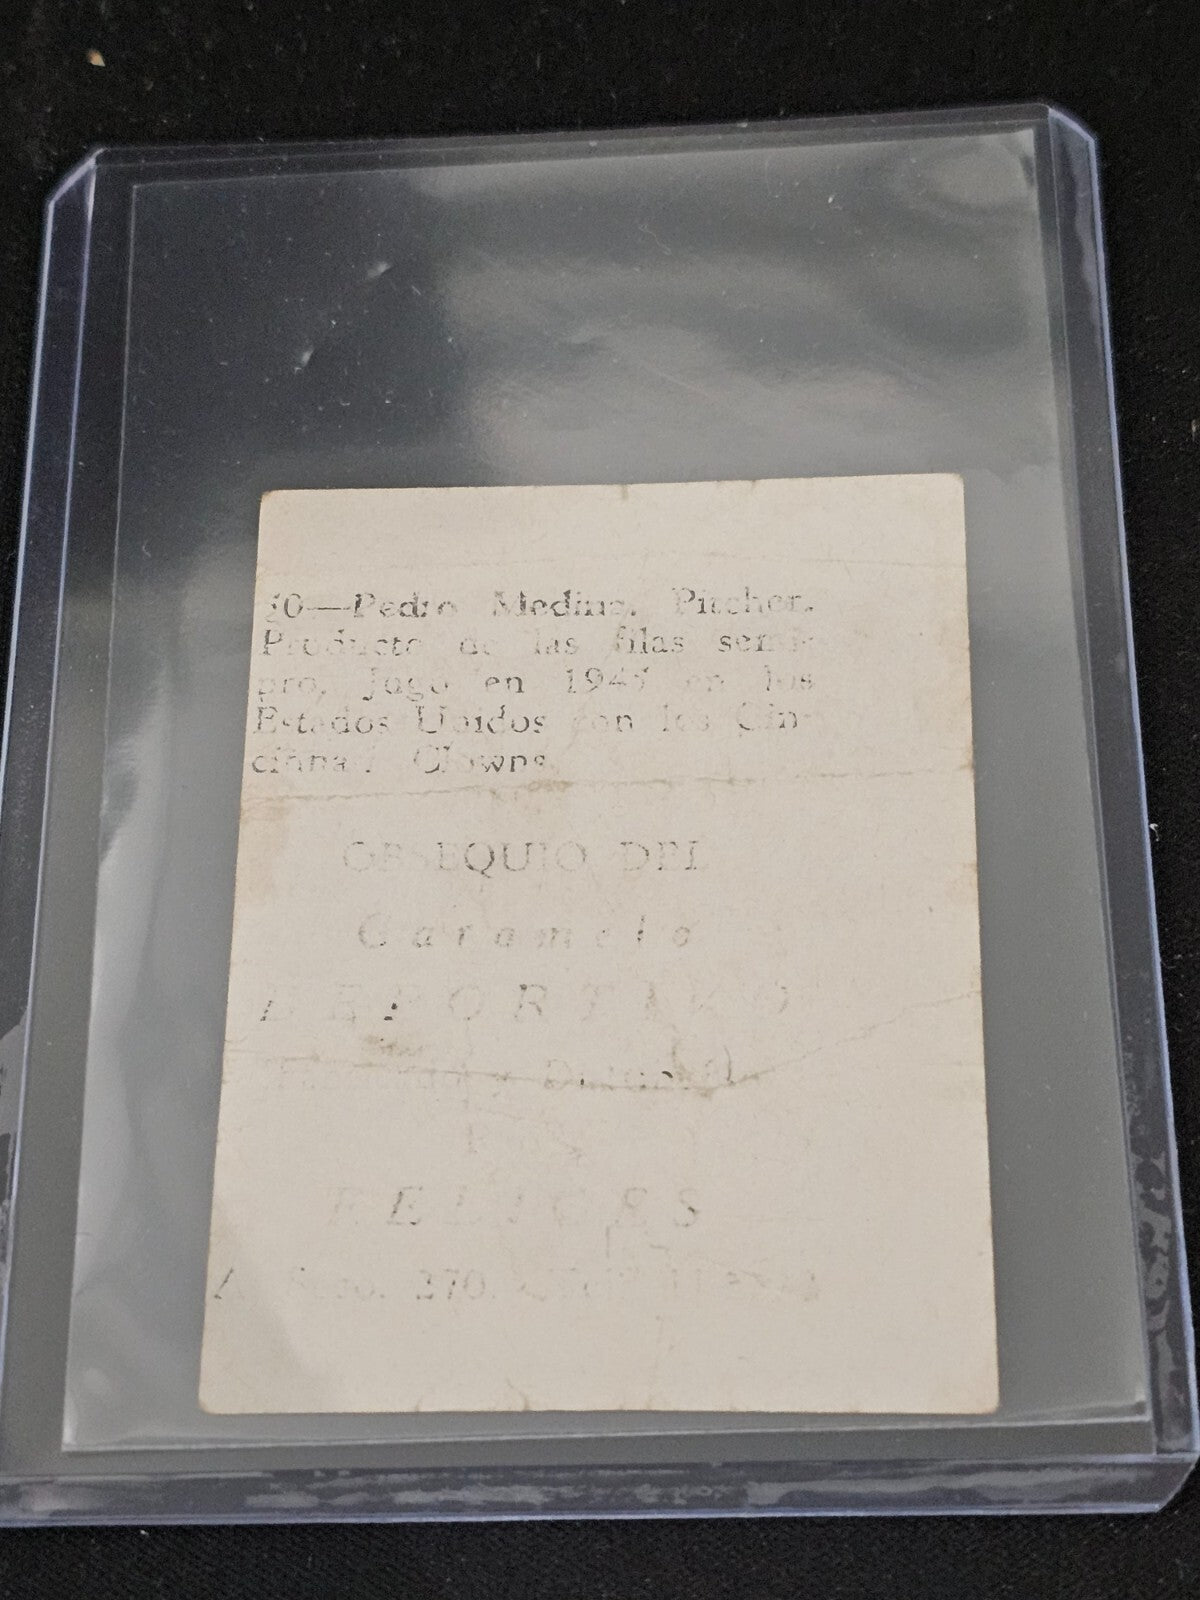 50—Pedro Medina. Pitcher.
Producto de las filas semi-
pro, Jugó en 1945 en los
Estados Unidos con los Cin-
cinnati Clowns
OBSEQUIO DEL
Caramelo
DEPORTIVO
y
FELICES
270.